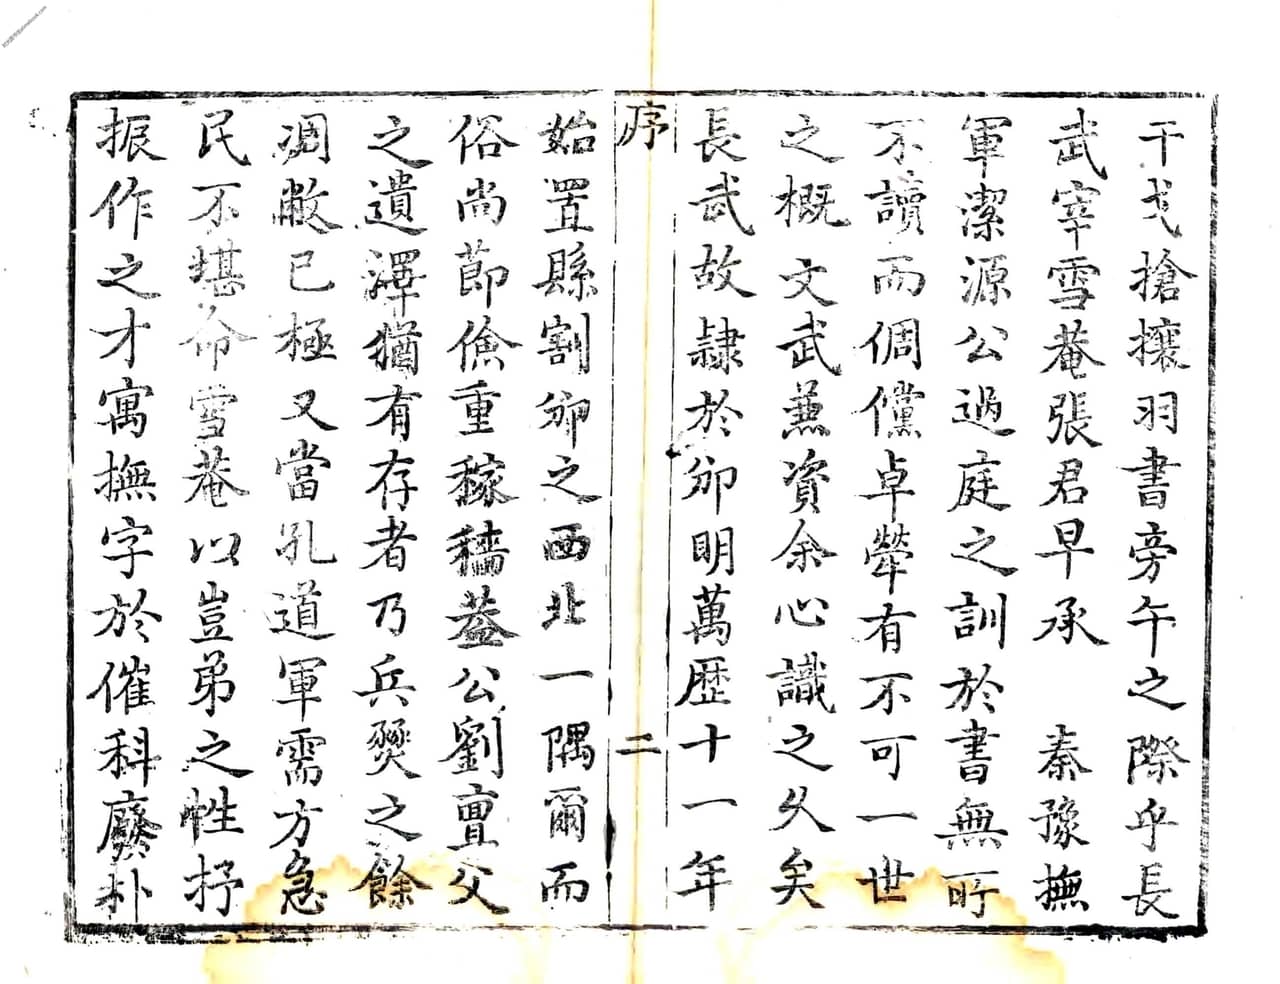 干戈搶攘羽書旁午之際乎長
武宰雪菴張君早承　秦豫撫
軍潔源公過庭之訓於書無所
不讀而倜儻卓犖有不可一世
之概文武兼資余心識之久矣
長武故隸於邠明萬歷十一年
序　二
始置縣割邠之西北一隅爾而
俗尚節儉重稼穡蓋公劉亶父
之遺澤猶有存者乃兵燹之餘
凋敝已極又當孔道軍需方急
民不堪命雪菴以豈弟之性抒
振作之才寓撫字於催科廢朴